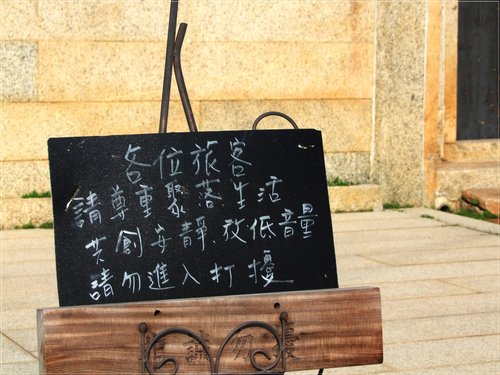 各位旅客
請尊重聚落生活
共創安靜.放低音量
請勿進入打擾
請勿